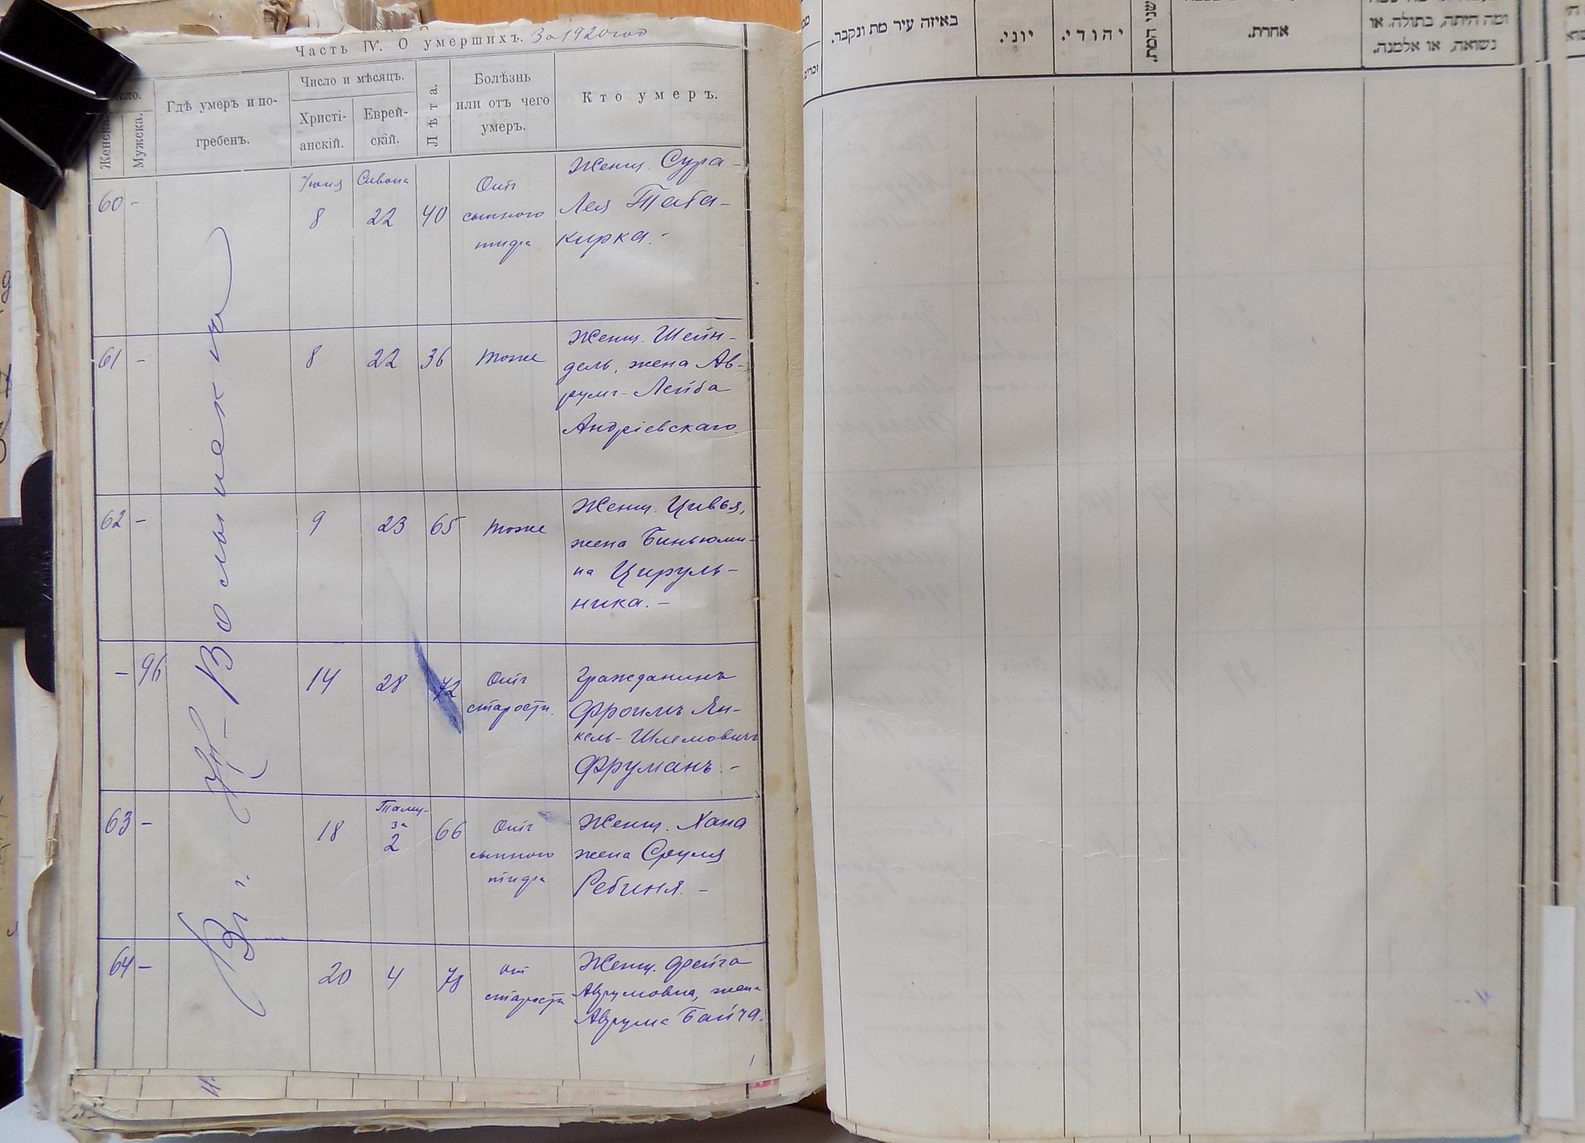 Часть IV. О умершихъ. За 1920 год
Число.
Женска.
Мужска.
Гдѣ умеръ и по-
гребенъ.
Число и мѣсяцъ.
Христі-
анскій.
Еврей-
скій.
Лѣта.
Болѣзнь
или отъ чего
умеръ.
Кто умеръ.
60 -
Іюня
8
Сивона
22
40
Отъ
сыпного
тифа
Женщ. Сура-
Лея Таба-
кирка. -
61 -
8
22
36
тоже
Женщ. Шейн-
дель, жена Ав-
румъ-Лейба
Андріевскаго.
62 -
9
23
65
тоже
Женщ. Цивья,
жена Биньюми-
на Цируль-
ника. -
- 96
14
28
72
Отъ
старости.
Гражданинъ
Фроимъ Ян-
кель-Шлемовичъ
Фруманъ. -
63 -
18
Таму-
за
2
66
Отъ
сыпного
тифа
Женщ. Хана
жена Сруля
Ребиня. -
64 -
20
4
78
от
старости
Женщ. Фейга
Аврумовна, жена
Аврума Байча.
באיזה עיר מת ונקבר.
יוני.
יהודי.
שני המת.
אחרת.
ומה היתה, בתולה. או
נשואה, או אלמנה.